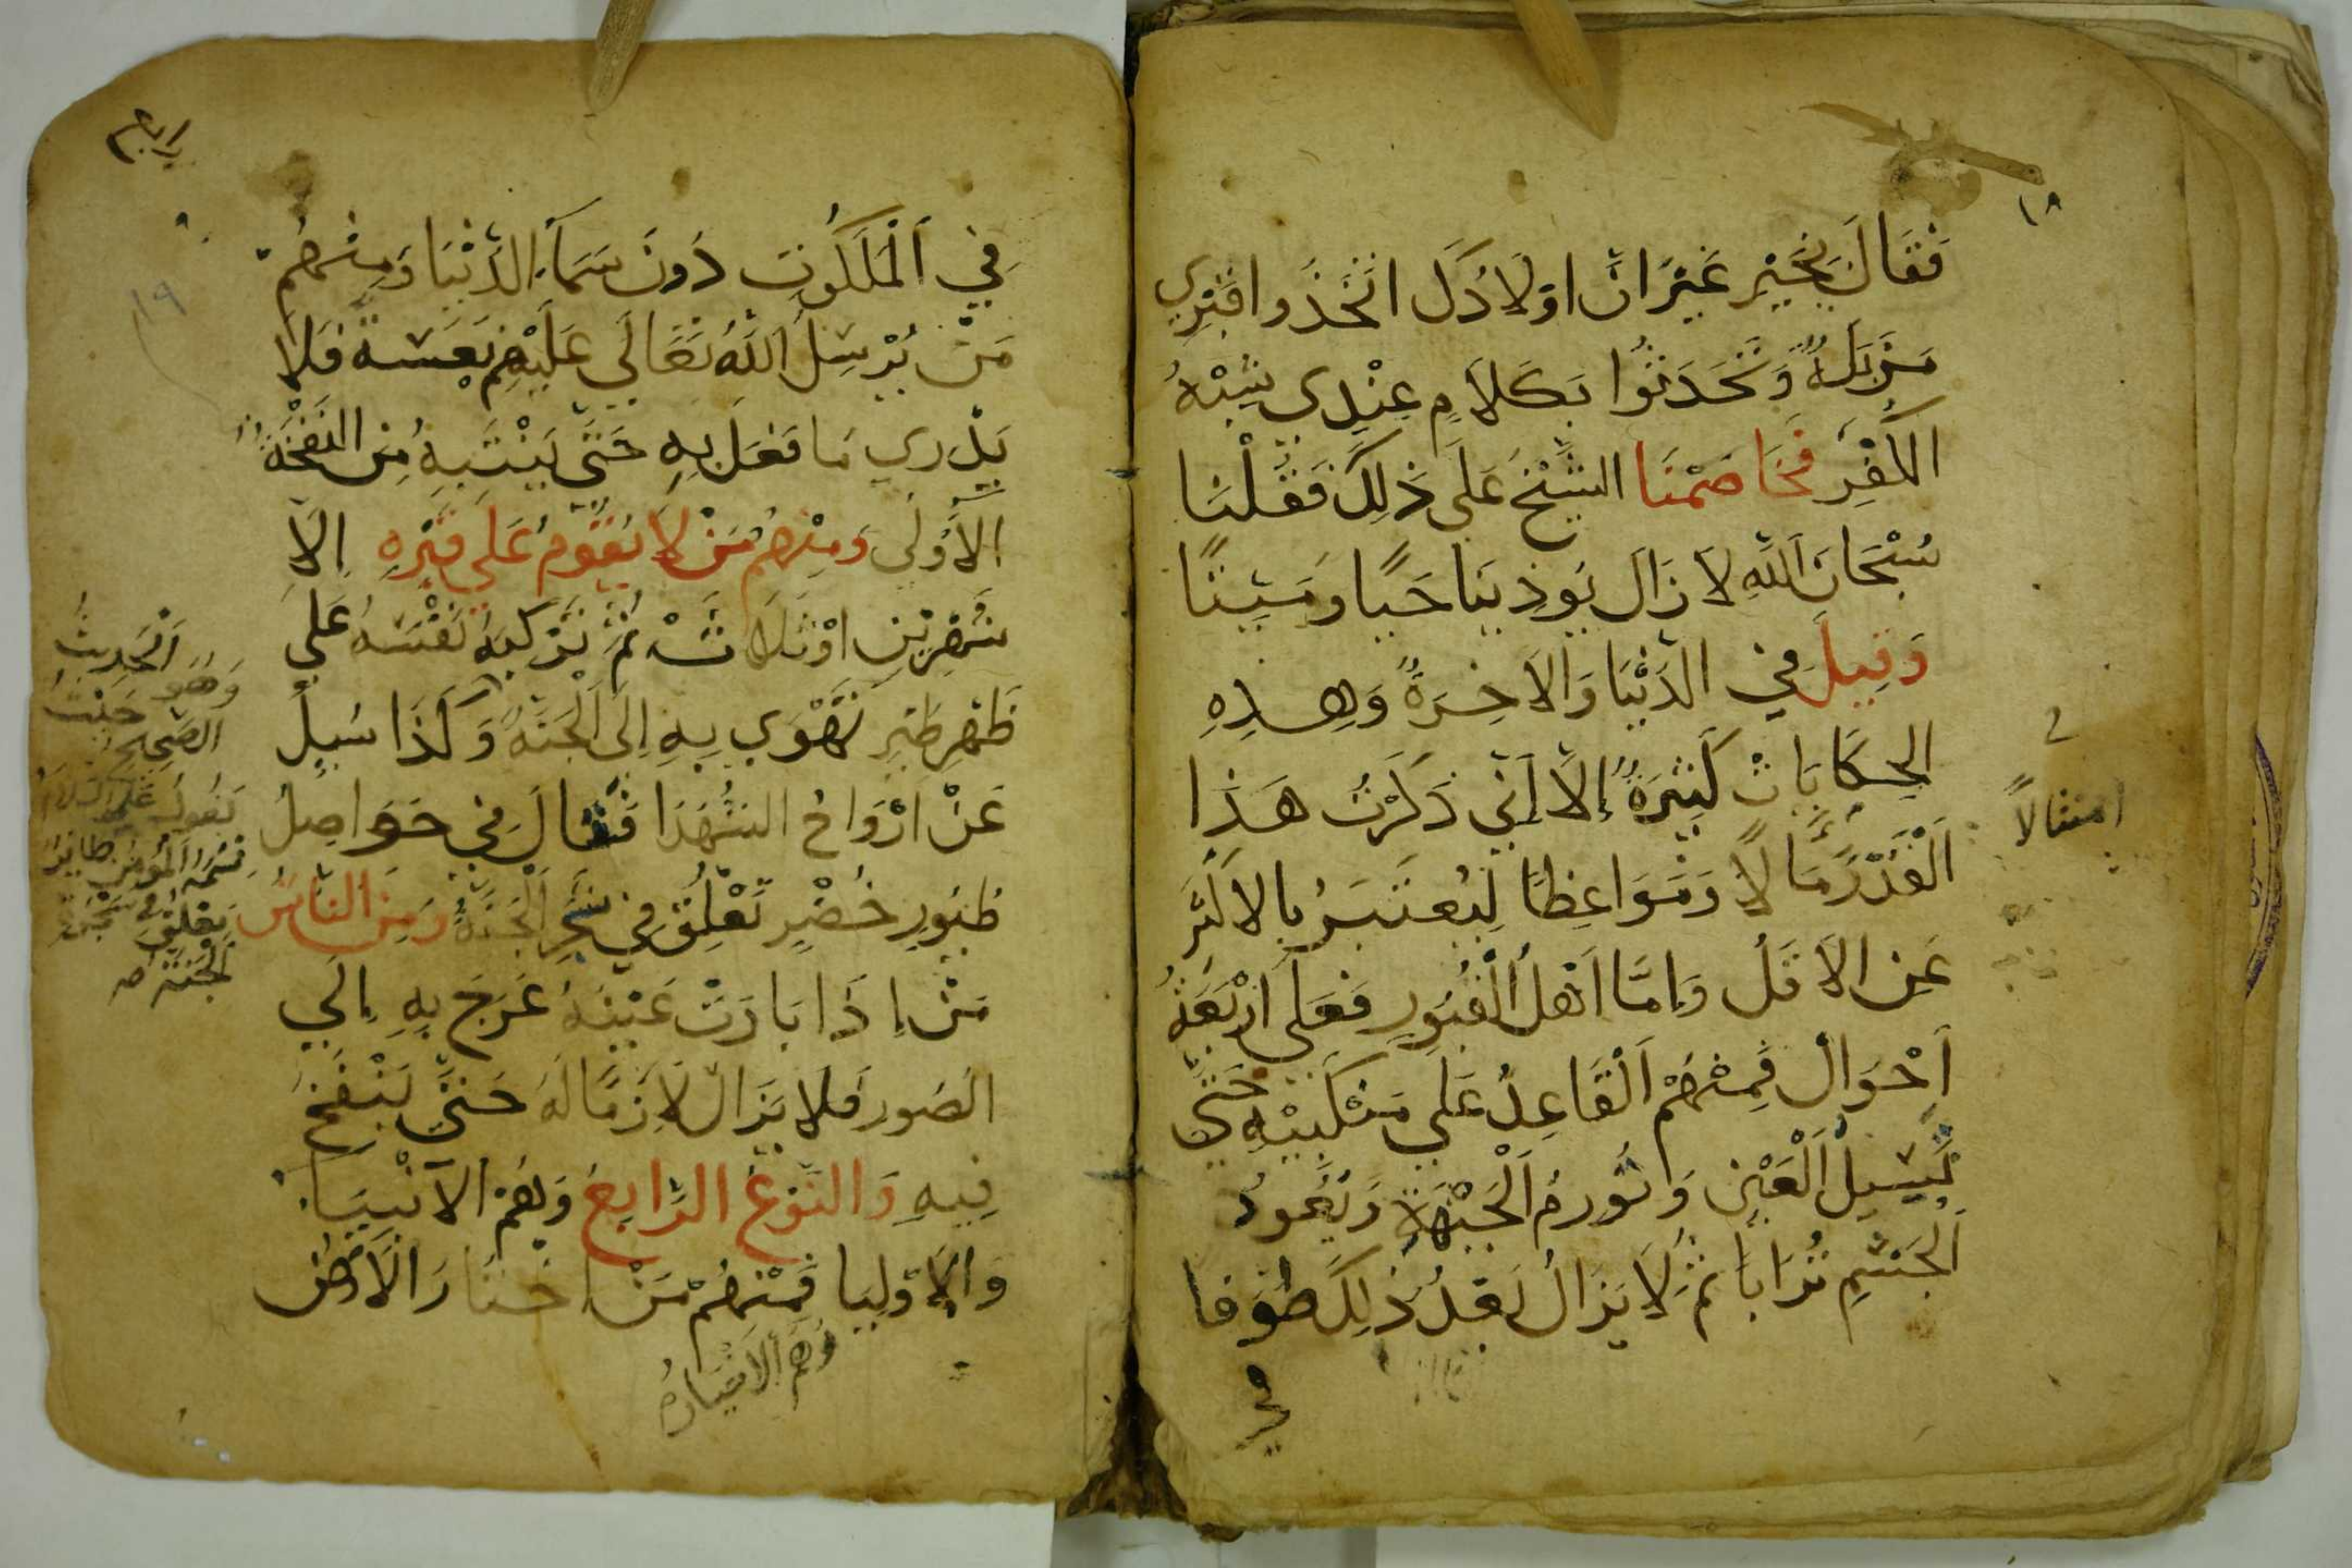 ١٨
فَقَالَ بِخَيْرٍ غَيْرَ انّ اوْلَادُكَ اتَّخَذُوا قَبْرِي
مَزبَلَةً وَتَحَدَثُوا بِكَلَامٍ عِنْدِي يُشْبِهُ
الكُفْرِ فَخَاصَمْنَا الشَّيْخُ عَلَى ذَلِكَ فَقُلْنَا
سُبْحَانَ اَللَّهِ لَا زَالَ يُوذِينَا حَيًا وَمَيِتًا
وَقِيلَ فِي الدُّنْيَا وَالَاخِرَةُ وَهِـذِهِ
الحِكَايَاتْ كَثِيرَةٌ إلَّا أَنِّي ذَكَرْتُ هَذَا
اَلْقَدْرَ مَّالًا وَمَوَاعِظًا لِيُعْتَبَرُ بِالاكْثَرِ
امتثالاً
عَنِ الاَقَلُ وَاِمَّا اَهْلُ الْقُبُورِ فَعَلَى اَرْبَعَةُ
اَحْوَالْ فَمِنْهُمْ اَلْقَاعِدُ عَلَى مَنْكَبَيْهِ حَتَّى
تَسِيلْ اَلْعَيْنِ وَتُورمُ اَلْجُبْهَة وَيَعُودُ
اَلْجِسْمِ تُرَابًا ثُمَّ لَا يَزَالُ بَعْدُ ذَلِكَ طَوفا
في
رابع
١٩
فِي اَلْمَلَكُوتِ دُونَ سَمَاَءِ الدُنْيَا وَمِنْهُمْ
مَنْ يُرْسِلُ اللَّهُ تَعَالَى عَلَيْهِمْ نَعْسَة فَلَا
يَدْرِي مَا فَعَلَ بِهِ حَتَّى يَنْتَبِهُ مِنِ النَفْخَةُ
الْأُولَى وَمِنْهُمْ مَنْ لَا يُقَوُمُ عَلَى قَبْرِهِ اِلَّا
شَهْرَيْنِ اوْ ثَلَاثْ ثُمَّ تَرْكَبُهُ نَفْسَهُ عَلَى
ظَهْرِ طَيرِ تَهْوَي بِهِ اِلَى الْجَنَّةُ وَكَذَا سُيِلَ
عَنْ اَرْوَاحُ الشُّهَدَا فَقَالَ فِي حَوَاصِلُ
طُيُورِ خُضْرِ تَعْلِقُ فِي شَجَرِ اَلْجَنَّةُ وَمِنَ النَّاسُ
مَنْ إذَا بَادَتْ عَيْنَهُ عَرَجَ بِهِ إلَى
الصُورِ فَلَا يَزَالْ لَازِمًا لَهُ حَتَّى يَنْفَخُ
فِيهِ وَالنَوْعُ الرَّابِعُ وَهُمْ الاَنْبِيَا
وَالأوْلِيَا فَمِنْهُمْ مَنْ اخْتَارَ الْأَرْضُ
وهم الاخيار
اَلحَدِيثُ
وَهُوَ
الصَحِيحُ حَيْثُ
يَقُولُ عَلَيه السَّلَامُ
نَسْمَةُ الْمُؤمِنِ طَائِرٌ
يَعْلِقُ فِي شَجَرَةِ
الْجَنَّة صح